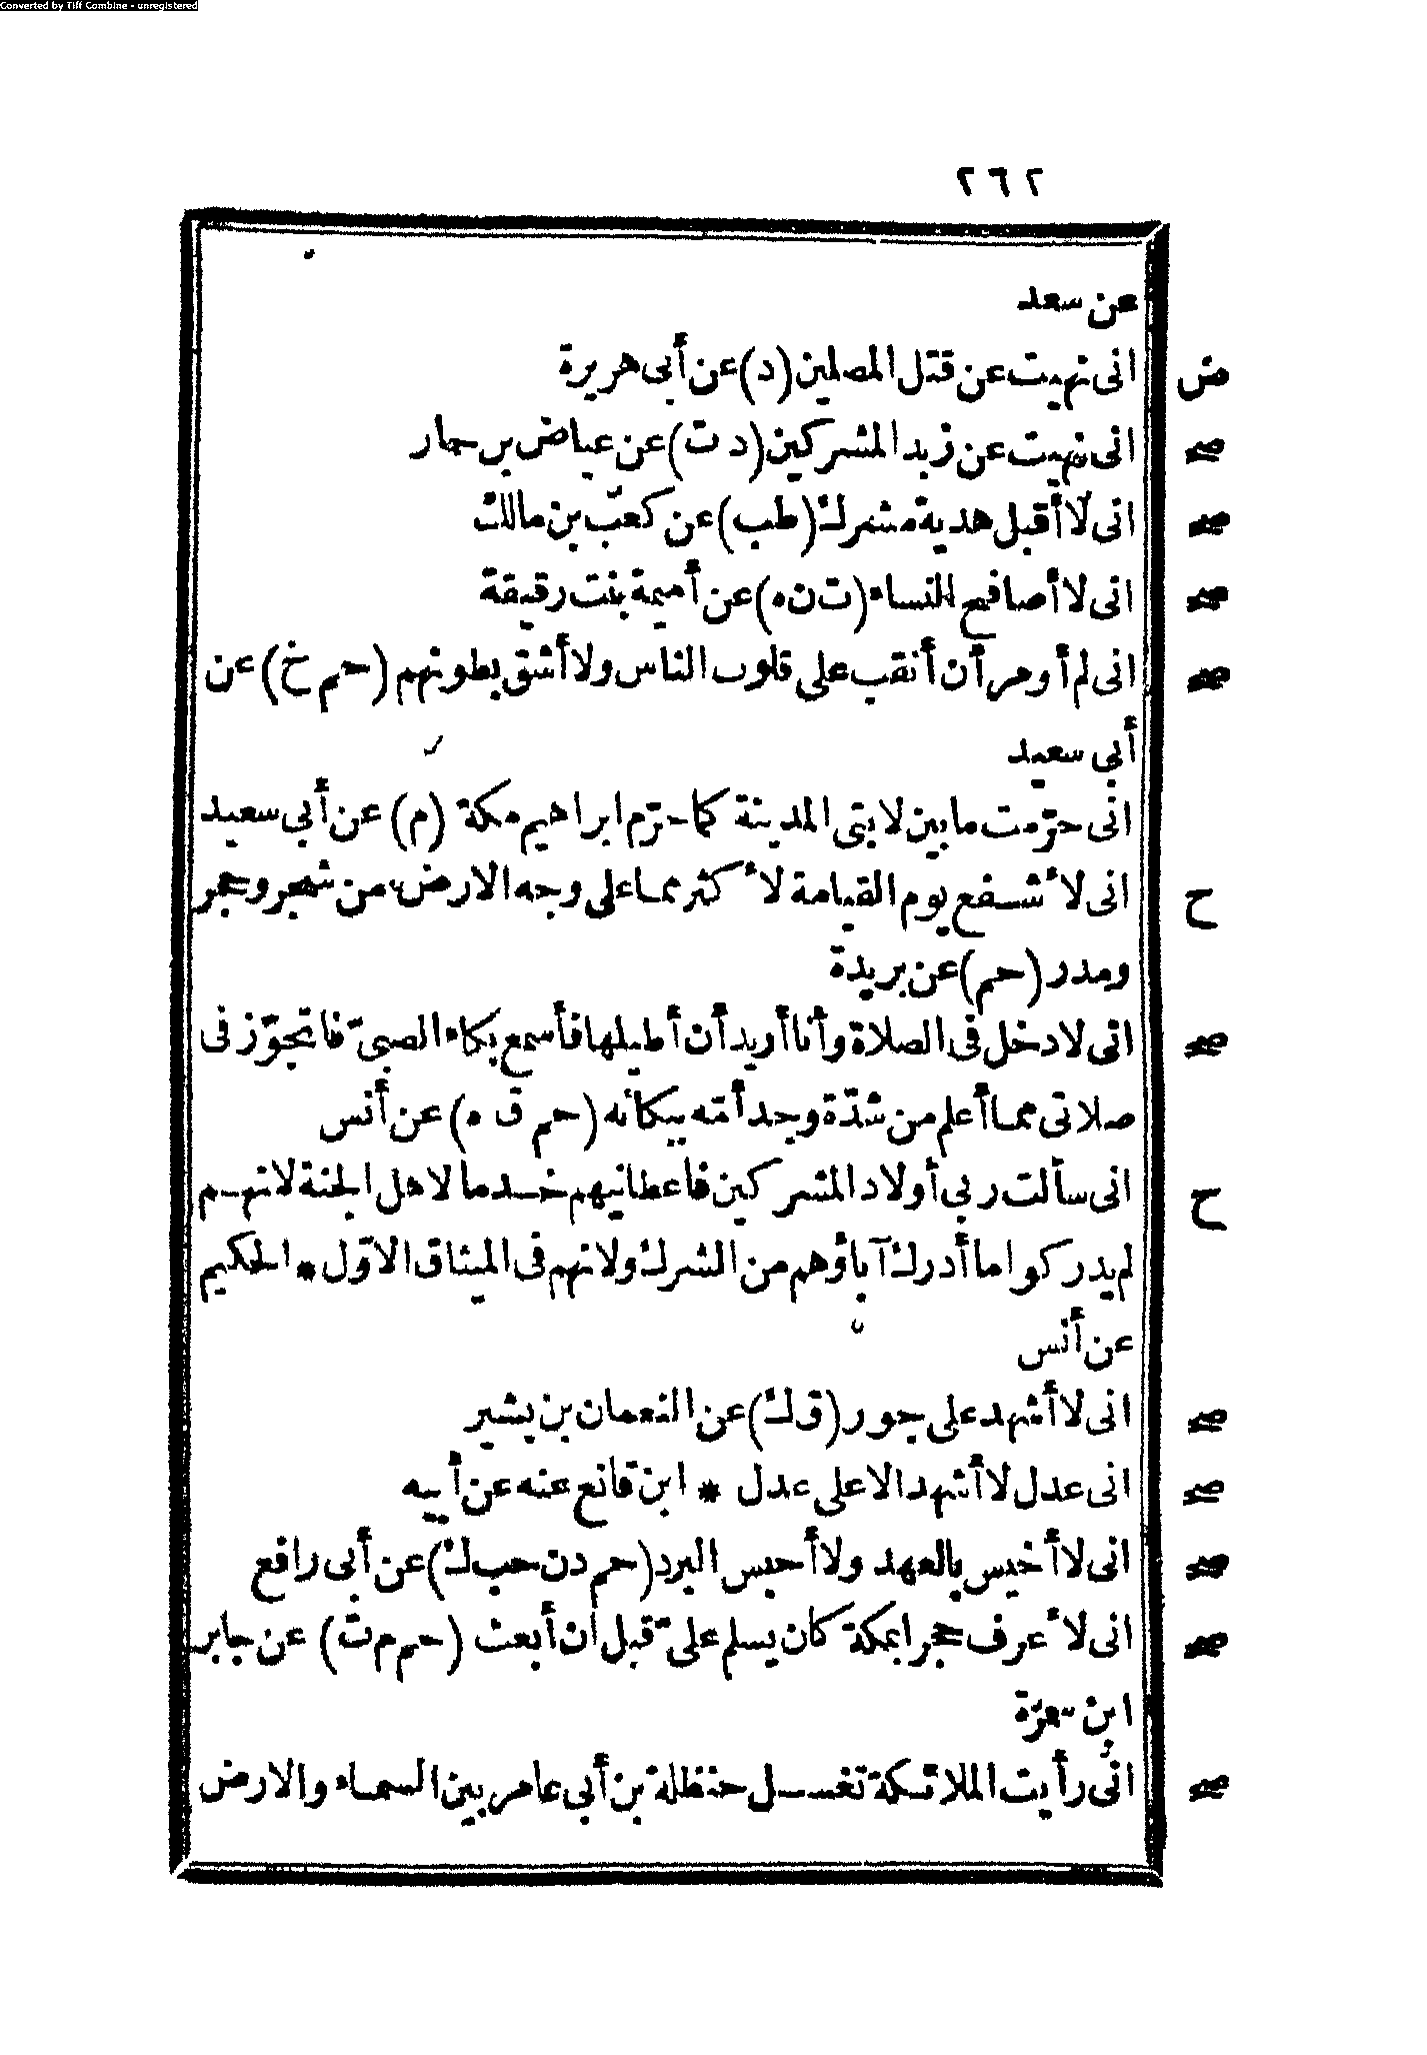 Converted by Tiff Combine - unregistered
٢٦٢
عن سعد
ض انى نهيت عن قتل المصلين (د) عن أبى هريرة
صح انى نهيت عن زبد المشركين (د ت) عن عياض بن حمار
صح انى لا أقبل هدية مشرك (طب) عن كعب بن مالك
صح انى لا أصافح النساء (ت ن ه) عن أميمة بنت رقيقة
صح انى لم أومر أن أنقب على قلوب الناس ولا أشق بطونهم (حم خ) عن
أبى سعيد
انى حرّمت ما بين لابتى المدينة كما حرّم ابراهيم مكة (م) عن أبى سعيد
ح انى لأشفع يوم القيامة لأكثر مما على وجه الارض من شجر وحجر
ومدر (حم) عن بريدة
صح انى لادخل فى الصلاة وأنا أريد أن أطيلها فأسمع بكاء الصبىّ فاتجوّز فى
صلاتى مما أعلم من شدّة وجد أمّه ببكائه (حم ق ه) عن أنس
ح انى سألت ربى أولاد المشركين فأعطانيهم خدما لاهل الجنة لانهم
لم يدركوا ما أدرك آباؤهم من الشرك ولانهم فى الميثاق الاوّل * الحكيم
عن أنس
صح انى لا أشهد على جور (ق ك) عن النعمان بن بشير
صح انى عدل لا أشهد الا على عدل * ابن قانع عنه عن أبيه
صح انى لا أخيس بالعهد ولا أحبس البرد (حم د ن حب ك) عن أبى رافع
صح انى لأعرف حجرا بمكة كان يسلم علىّ قبل أن أبعث (حم م ت) عن جابر
ابن سمرة
صح انى رأيت الملائكة تغسل حنظلة بن أبى عامر بين السماء والارض